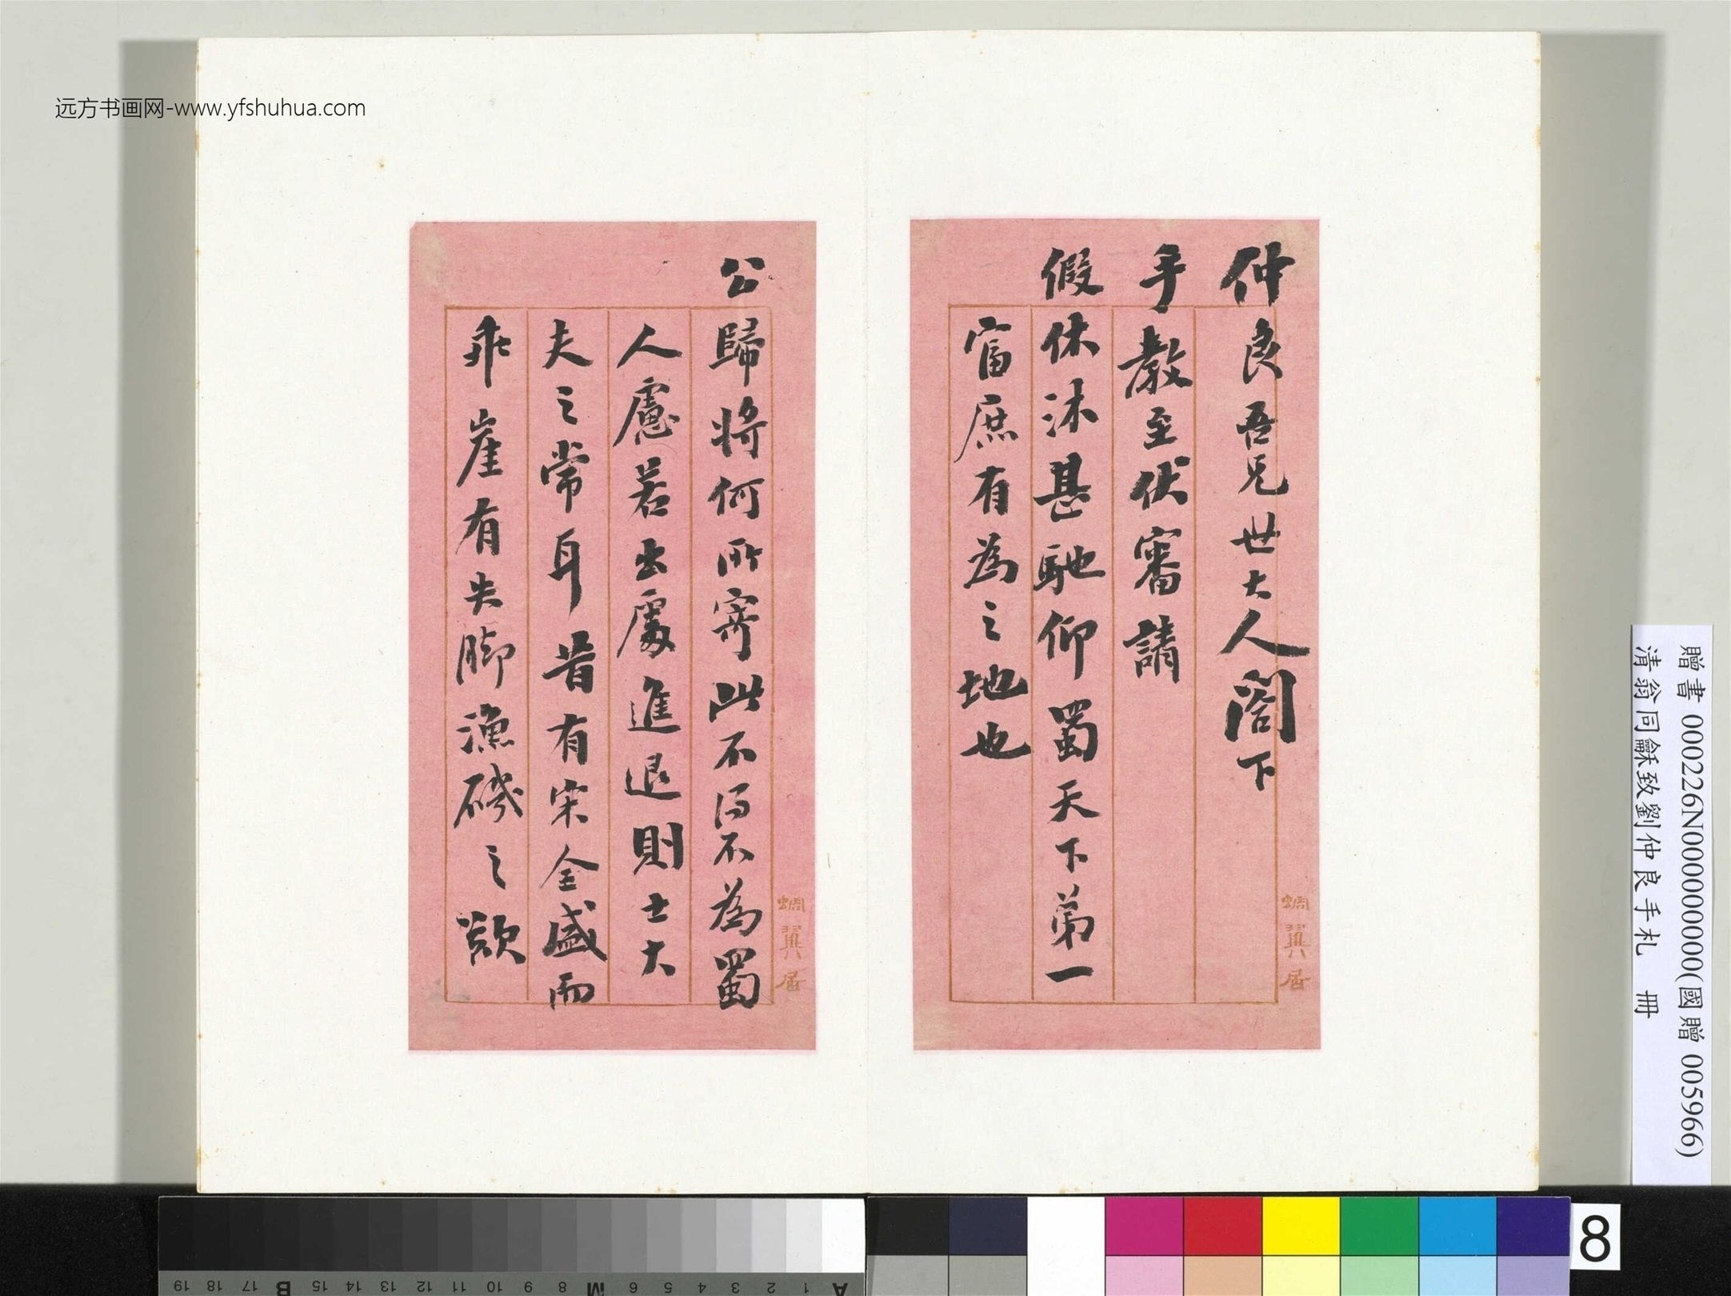 远方书画网-www.yfshuhua.com
仲良吾兄世大人閣下
手教至伏審請
假休沐甚馳仰蜀天下第一
富庶有為之地也
蜩巽居
公歸將何所寄此不得不為蜀
人慮若出處進退則士大
夫之常耳昔有宋全盛而
乖崖有失腳漁磯之歎
蜩巽居
贈書 000226N000000000(國贈 005966)
清翁同龢致劉仲良手札 冊
8
19 18 17 B 15 14 13 12 11 10 9 8 M 6 5 4 3 2 1 A